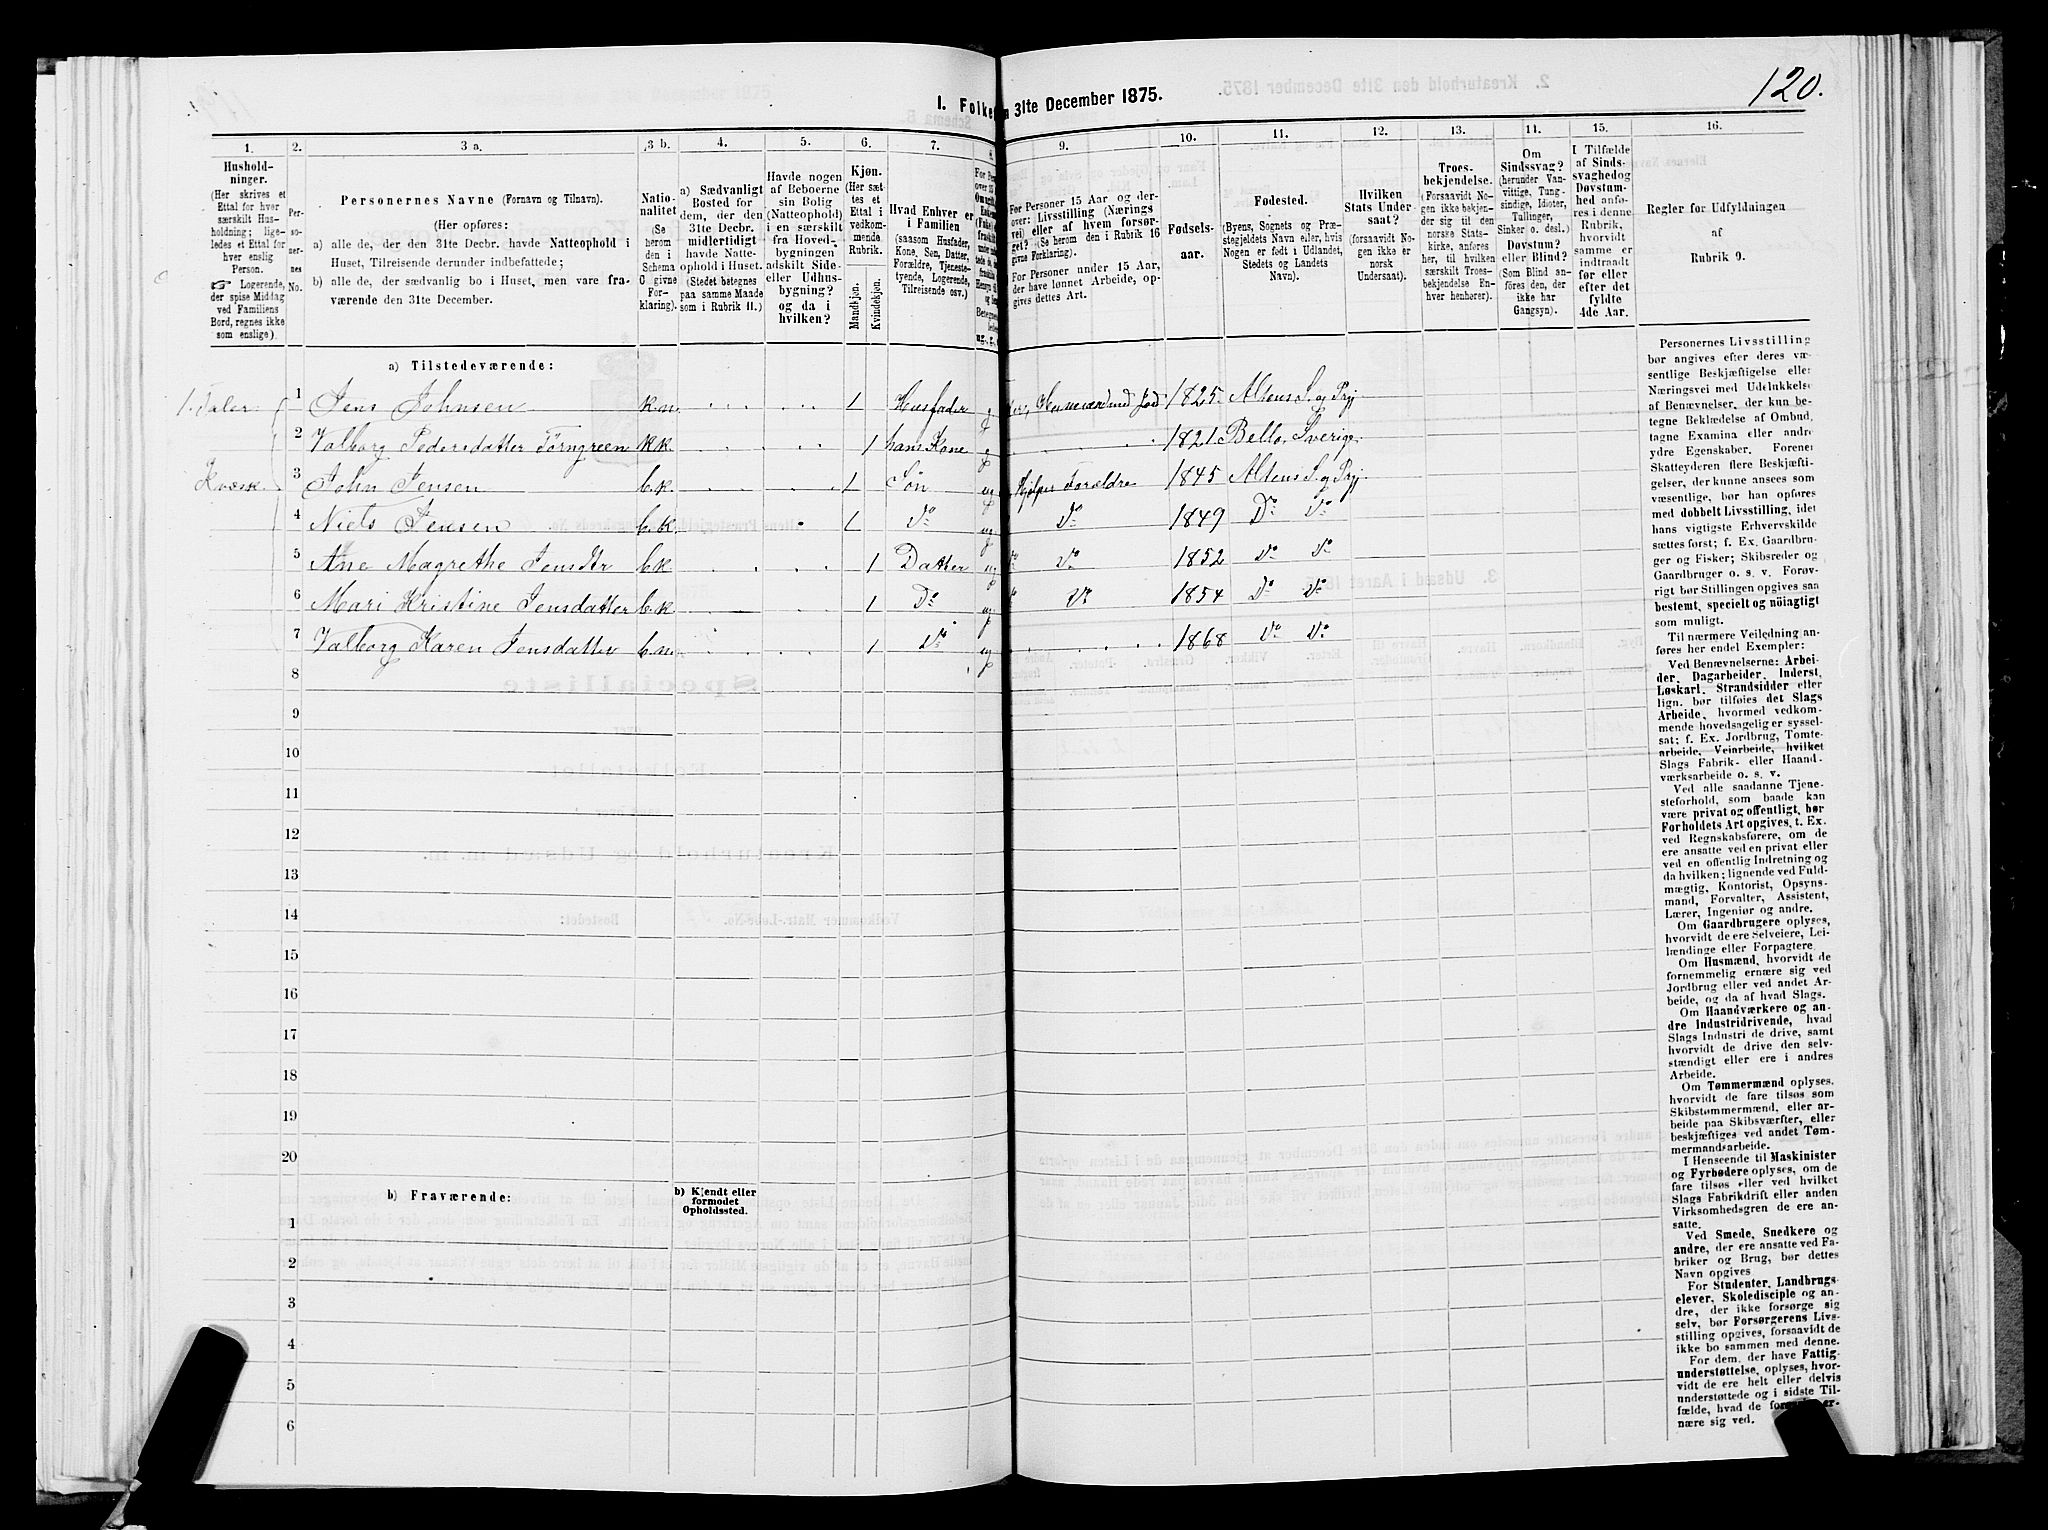 120.
I. Folke
a 31te December 1875.
1. 2. 3 a. 3 b. 4. 5. 6. 7. 8. 9. 10. 11. 12. 13. 14. 15. 16.
Hushold-
ninger.
(Her skrives et
Ettal for hver
særskilt Hus-
holdning; lige-
ledes et Ettal for
hver enslig
Person.
☞ Logerende,
der spise Middag
ved Familiens
Bord, regnes ikke
som enslige).
Per-
so-
ner-
nes
No.
Personernes Navne (Fornavn og Tilnavn).
(Her opføres:
a) alle de, der den 31te Decbr. havde Natteophold i
Huset, Tilreisende derunder indbefattede;
b) alle de, der sædvanlig bo i Huset, men vare fra-
værende den 31te December.
Natio-
nalitet
(Se
herom
den i
Schema
C givne
For-
klaring).
a) Sædvanligt
Bosted for
dem, der den
31te Decbr.
midlertidigt
havde Natte-
ophold i Huset.
(Stedet betegnes
paa samme Maade
som i Rubrik 11.)
Havde nogen
af Beboerne
sin Bolig
(Natteophold)
i en særskilt
fra Hoved-
bygningen
adskilt Side-
eller Udhus-
bygning?
og da i
hvilken?
Kjøn.
(Her sæt-
tes et
Ettal i
vedkom-
mende
Rubrik.
Mandkjøn.
Kvindekjøn.
Hvad Enhver er
i Familien
(saasom Husfader,
Kone, Søn, Datter,
Forældre, Tjeneste-
tyende, Logerende,
Tilreisende osv.)
For Personer 15 Aar og der-
over: Livsstilling (Nærings
vei) eller af hvem forsør-
get? (Se herom den i Rubrik 16
givne Forklaring).
For Personer under 15 Aar,
der have lønnet Arbeide, op-
gives dettes Art.
Fødsels-
aar.
Fødested.
(Byens, Sognets og Præ-
stegjeldets Navn eller, hvis
Nogen er født i Udlandet,
Stedets og Landets
Navn).
Hvilken
Stats Under
saat?
(forsaavidt No-
gen ikke er
norsk
Undersaat).
Troes-
bekjendelse.
(Forsaavidt No
gen ikke bekjen-
der sig til den
norske Stats-
kirke, anføres
her, til hvilken
særskilt Troes-
bekjendelse En-
hver henhører).
Om
Sindssvag?
(herunder Van-
vittige, Tung-
sindige, Idioter,
Tullinger,
Sinker o. desl.)
Døvstum?
eller Blind?
(Som Blind an-
føres den, der
ikke har
Gangsyn).
I Tilfælde
af Sinds-
svaghed og
Døvstum-
hed anfø-
res i denne
Rubrik,
hvorvidt
samme er
indtraadt
før eller
efter det
fyldte
4de Aar.
Regler før Udfyldningen
af
Rubrik 9.
a) Tilstedeværende:
1 Jens Johnsen k.n. 1 Husfader g 1825 Altens S. og Prgj
2 Valborg Pedersdatter Törngreen k.k. 1 hans Kone g 1821 Sverige
Kvæsk. 3 John Jensen b.k. 1 Søn ug Hjelper Forældre 1845 Altens S. og Prgj
4 Niels Jensen b.k. 1 Do ug Do 1849 Do Do
5 Ane Magrethe Jensdtr b.k 1 Datter ug Do Do 1852 Do Do
6 Mari Kristine Jensdatter b.k 1 Do ug Do 1854 Do Do
7 Valborg Karen Jensdatter b.n. 1 Do ug 1868 Do Do
8
9
10
11
12
13
14
15
16
17
18
19
20
b) Fraværende:
b) Kjendt eller
formodet
Opholdssted.
1
2
3
4
5
6
Personernes Livsstilling
bør angives efter deres væ-
sentlige Beskjæftigelse eller
Næringsvei med Udelukkelse
af Benævnelser, der kun be-
tegne Beklædelse af Ombud,
tagne Examina eller andre
ydre Egenskaber. Forener
Skatteyderen flere Beskjæfti-
gelser, der kunne ansees som
væsentlige, bør han opføres
med dobbelt Livsstilling, idet
hans vigtigste Erhvervskilde
sættes først; f. Ex. Gaardbru-
ger og Fisker; Skibsreder og
Gaardbruger o. s. v. Forøv-
rigt bør Stillingen opgives saa
bestemt, specielt og nöiagtigt
som muligt.
Til nærmere Veiledning an-
føres her endel Exempler:
Ved Benævnelserne: Arbei-
der, Dagarbeider, Inderst,
Løskarl, Strandsidder eller
lign. bør tilføies det Slags
Arbeide, hvormed vedkom-
mende hovedsagelig er syssel-
sat; f. Ex. Jordbrug, Tomte-
arbeide, Veiarbeide, hvilket
Slags Fabrik- eller Haand-
værksarbeide o. s. v.
Ved alle saadanne Tjene-
steforhold, som baade kan
være privat og offentligt, bør
Forholdets Art opgives, t. Ex.
ved Regnskabsførere, om de
ere ansatte ved en privat eller
ved en offentlig Indretning og
da hvilken; lignende ved Fuld-
mægtig, Kontorist, Opsyns-
mand, Forvalter, Assistent,
Lærer, Ingeniør og andre.
Om Gaardbrugere oplyses,
hvorvidt de ere Selveiere, Lei-
lændinge eller Forpagtere.
Om Husmænd, hvorvidt de
fornemmelig ernære sig ved
Jordbrug eller ved andet Ar-
beide, og da af hvad Slags.
Om Haandværkere og an-
dre Industridrivende, hvad
Slags Industri de drive, samt
hvorvidt de drive den selv-
stændigt eller ere i andres
Arbeide.
Om Tømmermænd oplyses,
hvorvidt de fare tilsøs som
Skibstømmermænd, eller ar-
beide paa Skibsværfter, eller
beskjæftiges ved andet Tøm-
mermandsarbeide.
I Henseende til Maskinister
og Fyrbødere oplyses, om de
fare tilsøs eller ved hvilket
Slags Fabrikdrift eller anden
Virksomhedsgren de ere an-
satte.
Ved Smede, Snedkere og
andre, der ere ansatte ved Fa-
briker og Brug, bør dettes
Navn opgives
For Studenter, Landbrugs
elever, Skoledisciple og an-
dre, der ikke forsørge sig
selv, bør Forsørgerens Livs-
stilling opgives, forsaavidt de
ikke bo sammen med denne.
For dem, der have Fattig-
understøttelse, oplyses, hvor-
vidt de ere helt eller delvis
understøttede og i sidste Til-
fælde, hvad de er-
nære sig ved.